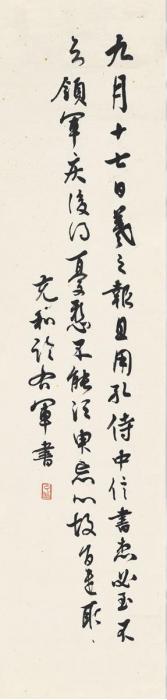 九月十七日羲之報且因孔侍中信書想必至不
知領軍疾後問憂懸不能須臾忘心故旨遣取
充和臨右軍書